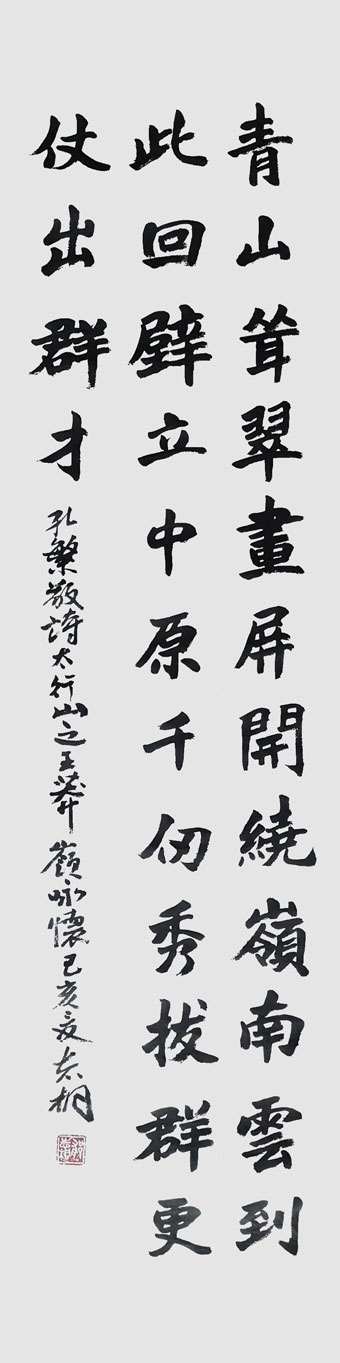 青山耸翠畫屏開繞嶺南雲到
此回壁立中原千仞秀拔群更
仗出群才
孔繁敬詩太行山之王莽嶺咏懷己亥夏